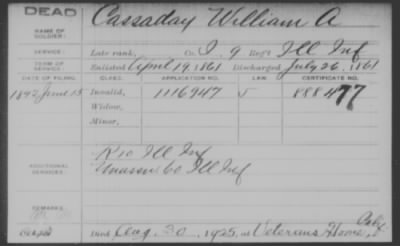 DEAD
NAME OF SOLDIER: Cassaday William A
SERVICE: Late rank, Co. I, 9 Reg't Ill Inf
TERM OF SERVICE: Enlisted April 19, 1861 Discharged July 26, 1861
DATE OF FILING. CLASS. APPLICATION NO. LAW. CERTIFICATE NO.
1892 June 13 Invalid, 1116947 888477
Widow,
Minor,
ADDITIONAL SERVICES: K 10 Ill Inf
Unassn 60 Ill Inf
REMARKS:
Died Aug. 30, 1925, at Veterans Home, Calif